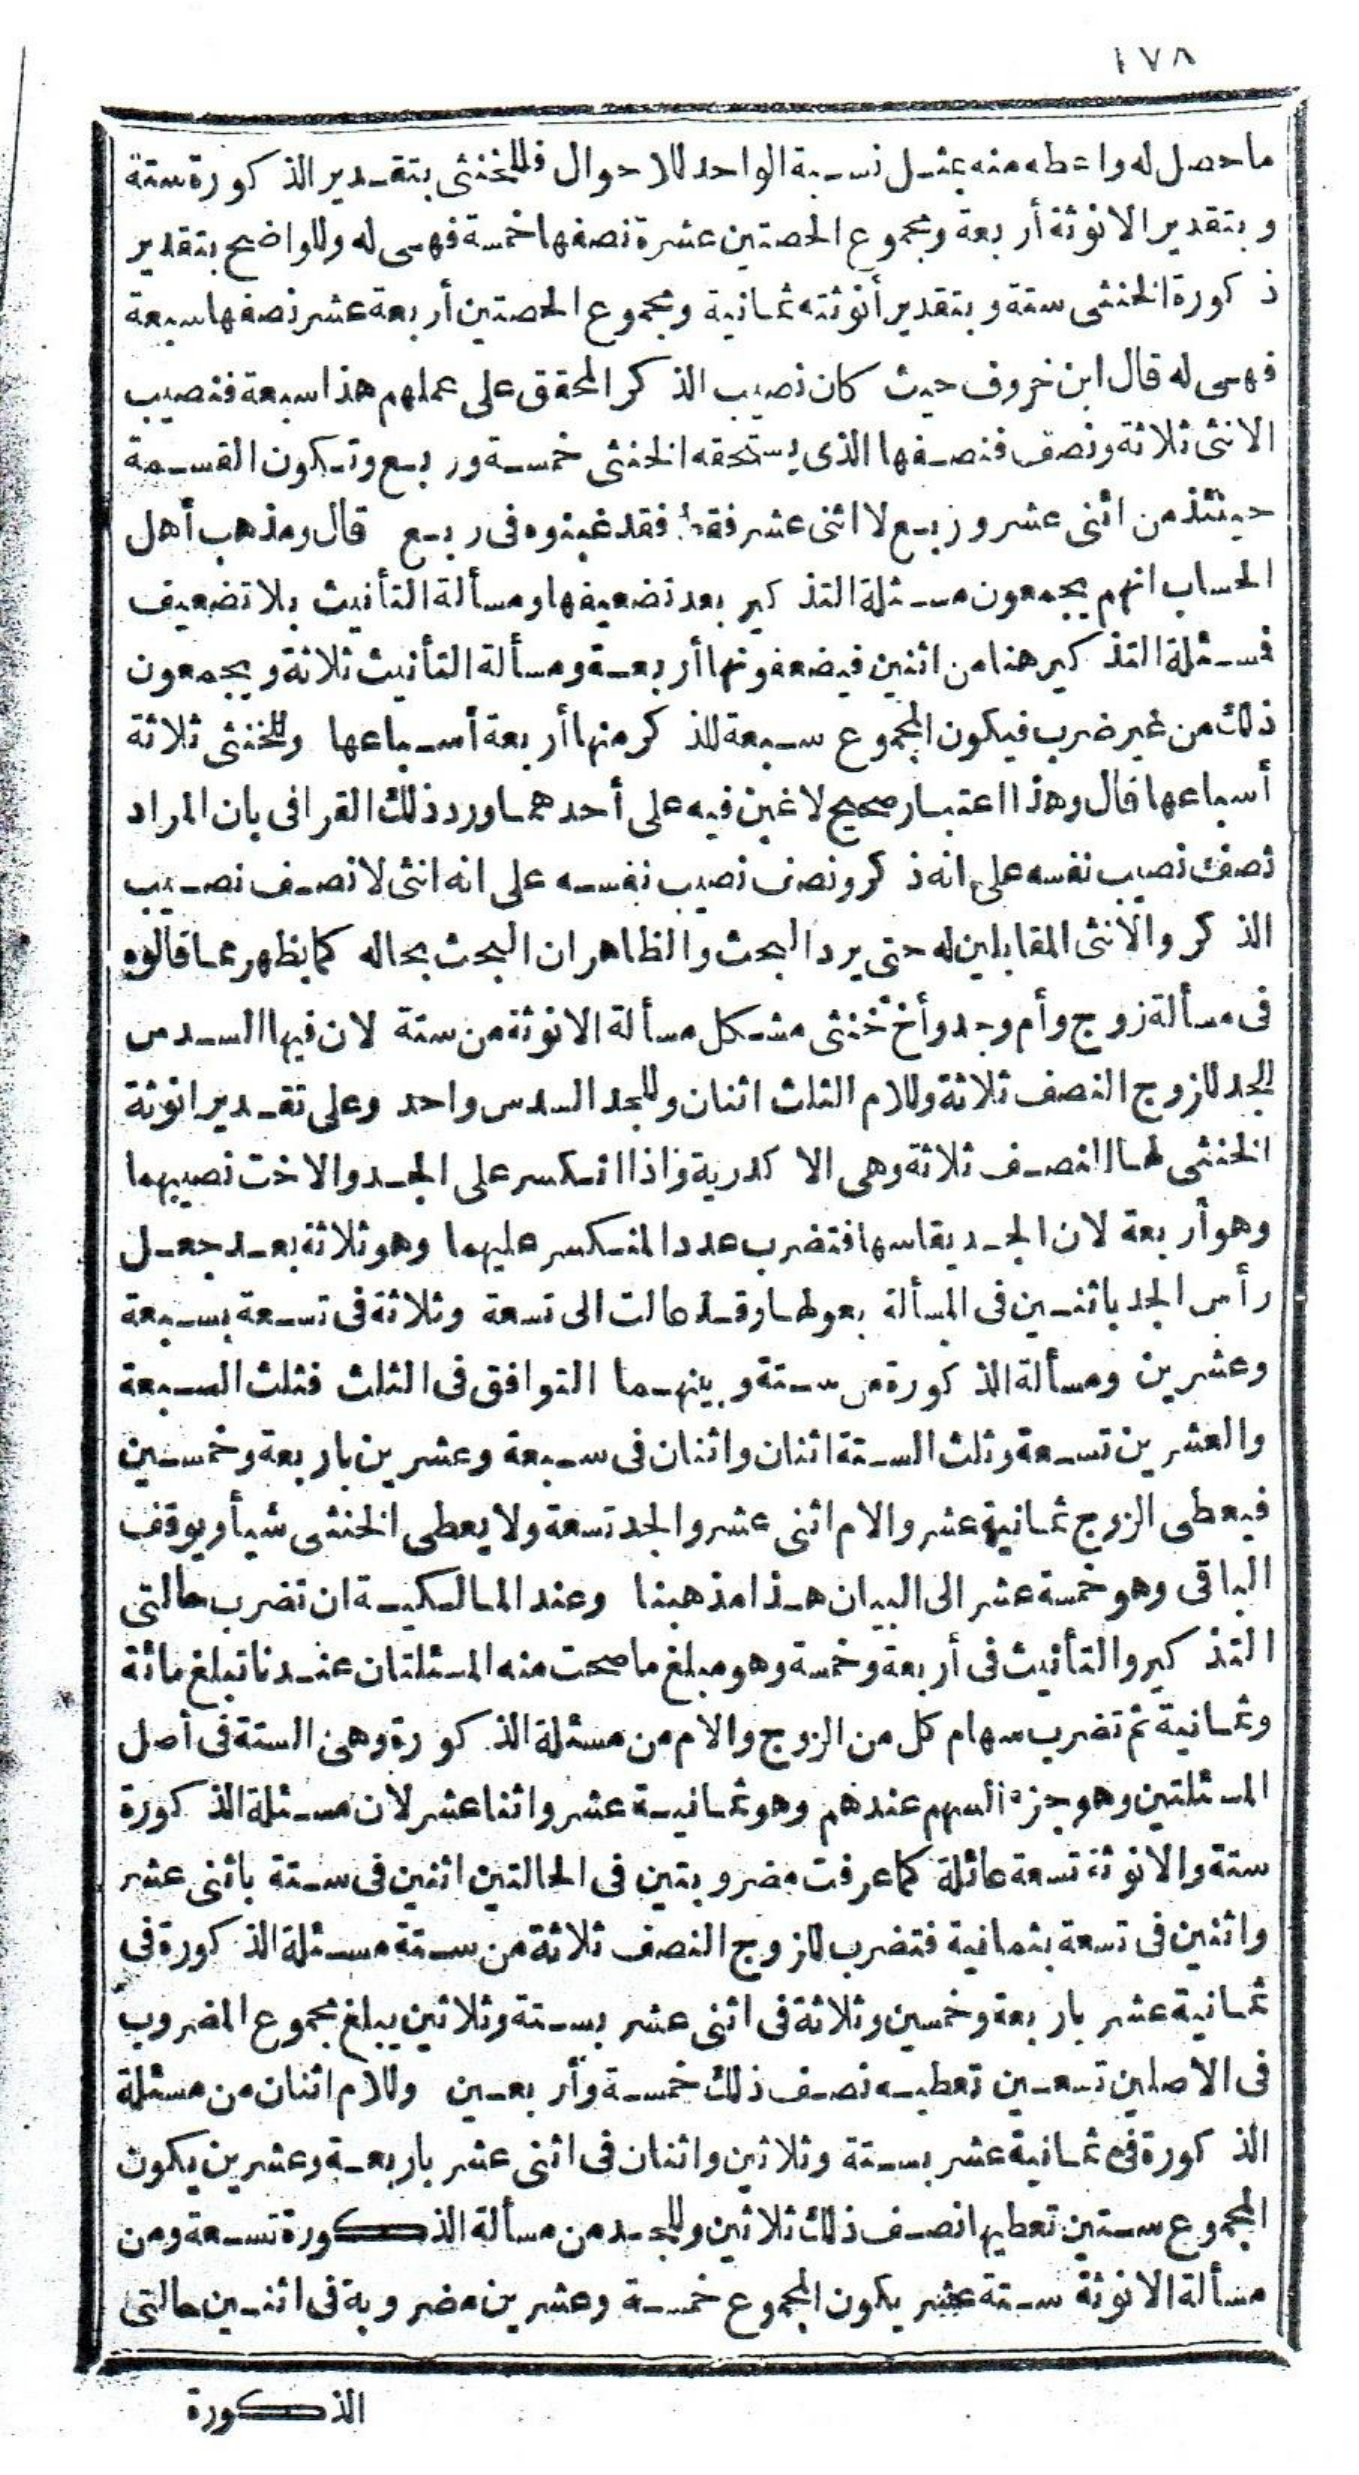 ١٧٨
ما حصل له واعطه منه بمثل نسبة الواحد للاحوال فللخنثى بتقدير الذكورة ستة
وبتقدير الانوثة أربعة ومجموع الحصتين عشرة نصفها خمسة فهى له وللواضح بتقدير
ذكورة الخنثى ستة وبتقدير أنوثته ثمانية ومجموع الحصتين أربعة عشر نصفها سبعة
فهى له قال ابن خروف حيث كان نصيب الذكر المحقق على عملهم هذا سبعة فنصيب
الانثى ثلاثة ونصف فنصفها الذى يستحقه الخنثى خمسة وربع وتكون القسمة
حينئذ من اثنى عشر وربع لا اثنى عشر فقط فقد غبنوه فى ربع قال ومذهب أهل
الحساب انهم يجمعون مسئلة التذكير بعد تضعيفها ومسألة التأنيث بلا تضعيف
فسئلة التذكير هنا من اثنين فيضعفونها أربعة ومسألة التأنيث ثلاثة ويجمعون
ذلك من غير ضرب فيكون المجموع سبعة للذكر منها أربعة أسباعها وللخنثى ثلاثة
أسباعها قال وهذا اعتبار صحيح لا غبن فيه على أحدهما ورد ذلك القرافى بان المراد
نصف نصيب نفسه على انه ذكر ونصف نصيب نفسه على انه انثى لا نصف نصيب
الذكر والانثى المقابلين له حتى يرد البحث والظاهر ان البحث بحاله كما يظهر مما قالوه
فى مسألة زوج وأم وجد وأخ خنثى مشكل مسألة الانوثة من ستة لان فيها السدس
للجد للزوج النصف ثلاثة وللام الثلث اثنان وللجد السدس واحد وعلى تقدير انوثة
الخنثى لها النصف ثلاثة وهى الاكدرية واذا انكسر على الجد والاخت نصيبهما
وهو أربعة لان الجد يقاسمها فتضرب عدد المنكسر عليهما وهو ثلاثة بعد جعل
رأس الجد باثنين فى المسألة بعولها وقد عالت الى تسعة وثلاثة فى تسعة بسبعة
وعشرين ومسألة الذكورة من ستة وبينهما التوافق فى الثلث فثلث السبعة
والعشرين تسعة وثلث الستة اثنان واثنان فى سبعة وعشرين باربعة وخمسين
فيعطى الزوج ثمانية عشر والام اثنى عشر والجد تسعة ولا يعطى الخنثى شيأ ويوقف
الباقى وهو خمسة عشر الى البيان هذا مذهبنا وعند المالكية ان تضرب حالتى
التذكير والتأنيث فى أربعة وخمسة وهو مبلغ ما صحت منه المسئلتان عندنا تبلغ مائة
وثمانية ثم تضرب سهام كل من الزوج والام من مسئلة الذكورة وهى الستة فى أصل
المسئلتين وهو جزء السهم عندهم وهو ثمانية عشر واثنا عشر لان مسئلة الذكورة
ستة والانوثة تسعة عائلة كما عرفت مضروبتين فى الحالتين اثنين فى ستة باثنى عشر
واثنين فى تسعة بثمانية فتضرب للزوج النصف ثلاثة من ستة مسئلة الذكورة فى
ثمانية عشر باربعة وخمسين وثلاثة فى اثنى عشر بستة وثلاثين يبلغ مجموع المضروب
فى الاصلين تسعين تعطيه نصف ذلك خمسة وأربعين وللام اثنان من مسئلة
الذكورة فى ثمانية عشر بستة وثلاثين واثنان فى اثنى عشر باربعة وعشرين يكون
المجموع ستين تعطيها نصف ذلك ثلاثين وللجد من مسألة الذكورة تسعة ومن
مسألة الانوثة ستة عشر يكون المجموع خمسة وعشرين مضروبة فى اثنين حالتى
الذكورة